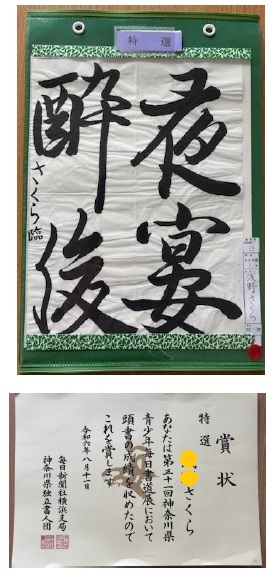 特選
夜宴
酔後
さくら臨
浅野さくら
賞状
特選
さくら
あなたは第三十一回神奈川県
青少年毎日書道展において
頭書の成績を収めたので
これを賞します
令和六年八月十一日
毎日新聞社横浜支局
神奈川県独立書人団